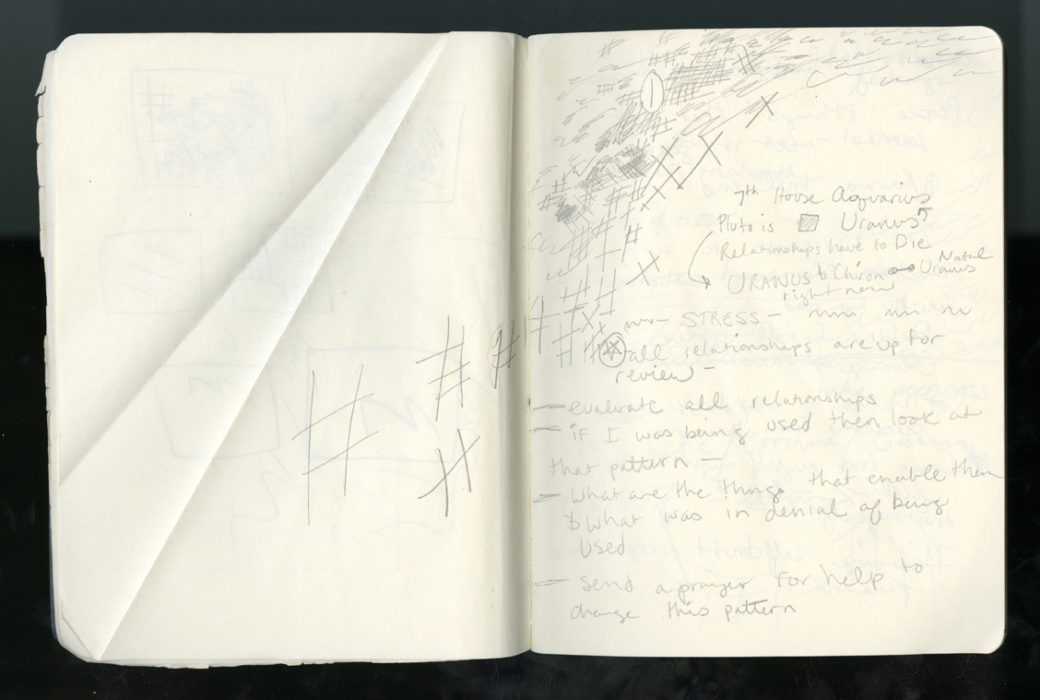 7th House Aquarius
Pluto is □ Uranus
Relationships have to Die
URANUS Chiron Natal Uranus
right now
- STRESS -
all relationships are up for
review -
- evaluate all relationships
- if I was being used then look at
that pattern -
- What are the things that enable them
& what was in denial of being
used
- send a prayer for help to
change this pattern